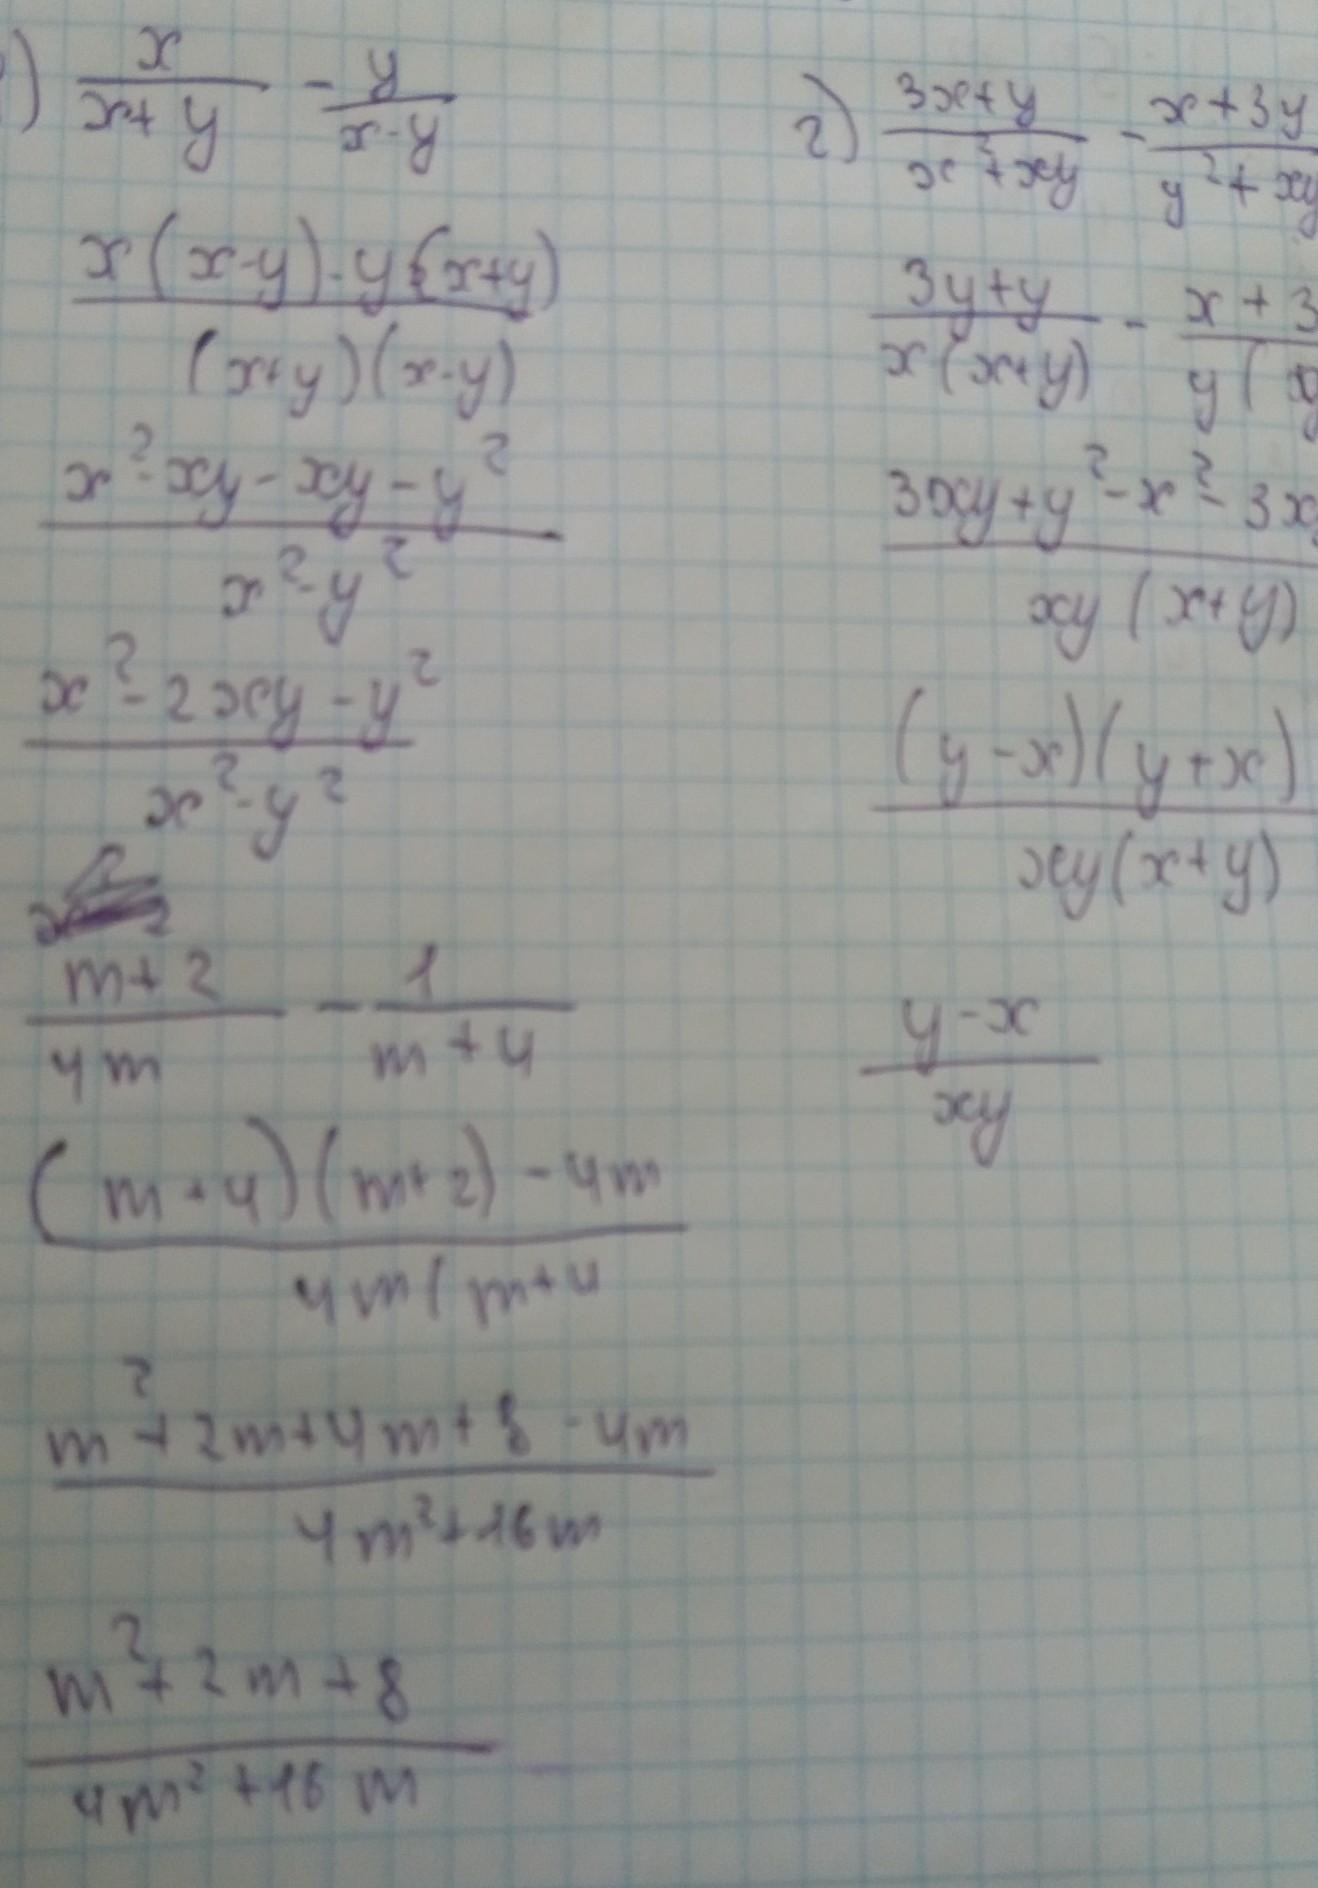 ) x/(x+y) - y/(x-y)
(x(x-y)-y(x+y))/((x+y)(x-y))
(x²-xy-xy-y²)/(x²-y²)
(x²-2xy-y²)/(x²-y²)
(m+2)/(4m) - 1/(m+4)
((m+4)(m+2)-4m)/(4m(m+4
(m²+2m+4m+8-4m)/(4m²+16m)
(m²+2m+8)/(4m²+16m)
г) (3x+y)/(x²+xy) - (x+3y)/(y²+xy)
(3y+y)/(x(x+y)) - (x+3)/(y(
(3xy+y²-x²-3x)/(xy(x+y))
((y-x)(y+x))/(xy(x+y))
(y-x)/(xy)